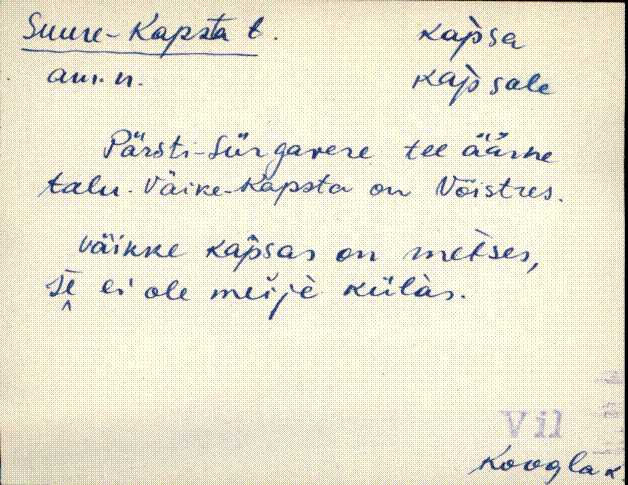 Suure-Kapsta t. kap̀sa
am. n. kap̀sale
Pärsti-Sürgavere tee äärne
talu. Väike-Kapsta on Võistres.
väikke kap̀sas on metses,
sè ei ole meije külàs.
Vil
Kooglak